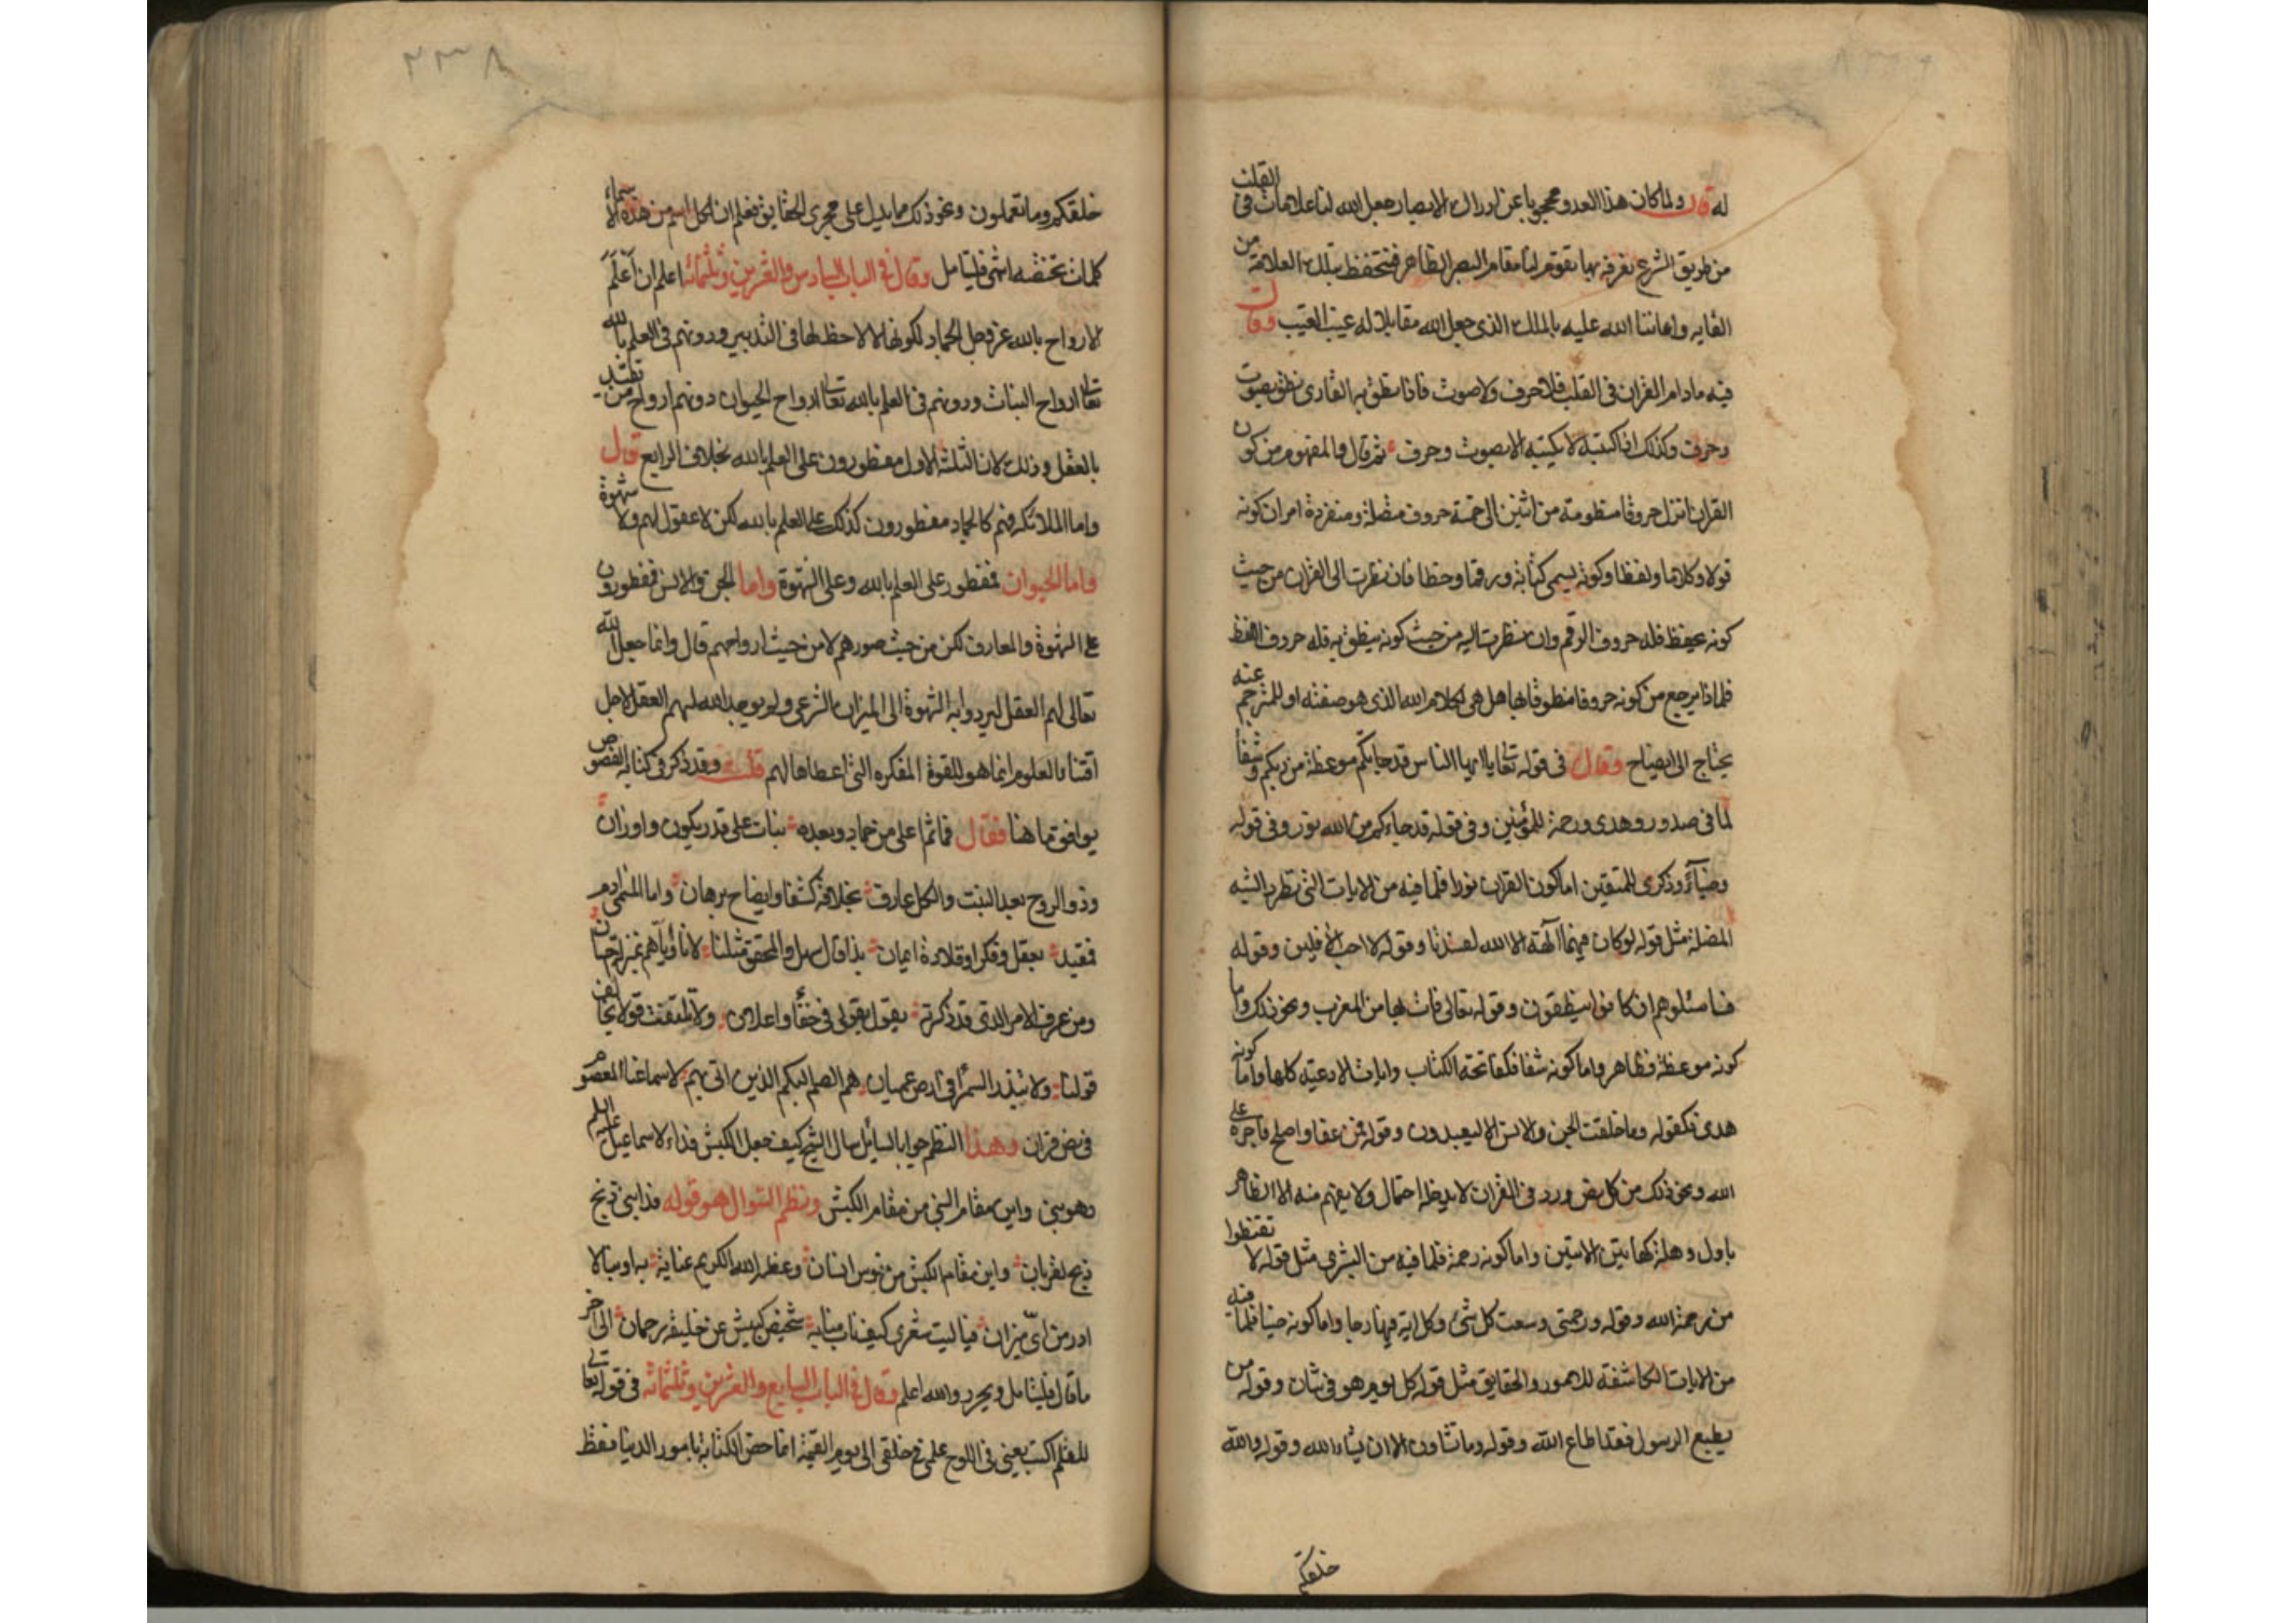 له قال ولما كان هذا العدو محجوبا عن ادراك الابصار جعل الله لنا علامات في القلب
من طريق الشرع نعرفه بها تقوم لنا مقام البصر الظاهر فنتحفظ بتلك العلامة من
القايه واعاننا الله عليه بالملك الذي جعل الله مقابلا له غيب لغيب وقال
فيه مادام القران في القلب فلا حرف ولا صوت فاذا نطق به القاري نطق بصوت
وحرف وكذلك اذا كتبه لا يكتبه الا بصوت وحرف ثم قال والمفهوم من كون
القران انزل حروفا منظومة من اثنين الى خمسة حروف متصلة ومنفردة امران كونه
قولا وكلاما ولفظا وكونه يسمى كتابة ورقما وخطا فان نظرت الى القران من حيث
كونه يحفظ فله حروف الرقم وان نظرت اليه من حيث كونه ينطق به فله حروف اللفظ
فلماذا يرجع من كونه حروفا منطوقا بها هل هي لكلام الله الذي هو صفته او للمترجم عنه
يحتاج الى ايضاح وقال في قوله تعالى يا ايها الناس قد جاءتكم موعظة من ربكم وشفا
لما في صدور وهدى ورحمة للمؤمنين وفي قوله قد جاءكم من الله نور وفي قوله
وضيآء وذكرى للمتقين اما كون القران نورا فلما فيه من الايات التي تطرد الشبه
المضلة مثل قوله لو كان فيهما آلهة الا الله لفسدتا وقوله لا احب الافلين وقوله
فاسئلوهم ان كانوا ينطقون وقوله تعالى فات بها من المغرب ونحو ذلك واما
كونه موعظة فظاهر واما كونه شفا فكفاتحة الكتاب وايات الادعيه كلها واما كونه
هدى فكقوله وما خلقت الجن والانس الا ليعبدون وقوله فمن عفا واصلح فاجره على
الله ونحو ذلك من كل نص ورد في القران لا يدخله احتمال ولا يفهم منه الا الظاهر
باول وهلة كهاتين الايتين واما كونه رحمة فلما فيه من البشرى مثل قوله لا تقنطوا
من رحمة الله وقوله ورحمتي وسعت كل شئ وكل اية فيها رجا واما كونه ضيا فلما فيه
من الايات الكاشفة للامور والحقايق مثل قوله كل يوم هو في شان وقوله من
يطيع الرسول فقد اطاع الله وقوله وما تشاون الا ان يشاء الله وقوله والله
خلقكم
٢٣٨
خلقكم وما تعملون ونحو ذلك مما يدل على مجرى الحقايق فعلم ان لكل اسم من هذه الاسماء
كلمات تخصه انتهى فليتامل وقال في الباب السادس والعشرين وثلثمائة اعلم ان اعلم
الارواح بالله عز وجل الجماد لكونها لا حظ لها في التدبير ودونهم في العلم بالله
تعالى ارواح النبات ودونهم في العلم بالله تعالى ارواح الحيوان دونهم ارواح من تقيد
بالعقل وذلك لان الثلثه الاول مفطورون على العلم بالله بخلاف الرابع قال
واما الملائكه فهم كالجماد مفطورون كذلك على العلم بالله لكن لا عقول لهم ولا شهوة
واما الحيوان فمفطور على العلم بالله وعلى الشهوة واما الجن والانس فمفطورون
على الشهوة والمعارف لكن من حيث صورهم لا من حيث ارواحهم قال وانما جعل الله
تعالى لهم العقل ليردوا به الشهوة الى الميزان الشرعي ولم يوجد الله لهم العقل لاجل
اقتناء العلوم انما هو للقوة المفكره التي اعطاها لهم قلت وقد ذكر في كتابه الفصوص
يوافق ما هنا فقال فما ثم اعلى من جماد وبعده نبات على قدر يكون واوزان
وذو الروح بعد النبت والكل عارف بخلاقه كشفا وايضاح برهان واما المسمى ادم
فمقيد بعقل وفكر او قلادة ايمان بذا قال سهل والمحقق مثلنا لانا واياهم بمنزل احسان
ومن عرف الامر الذي قد ذكرته يقول بقولي في خفاء واعلان ولا تلتفت قولا يخالف
قولنا ولا تبذر السمرا في ارض عميان هم الصم البكم الذين اتى بهم لاسماعنا المعصوم
في نص قران وهذا النظم جوابا لسائل سال الشيخ كيف جعل الكبش فداء لاسماعيل عليه السلام
وهو نبي واين مقام النبي من مقام الكبش ونظم السوال هو قوله فدا نبي ذبح
ذبح لقربان واين مقام الكبش من نوس انسان وعظم الله الكريم عناية به او بنا لا
ادر من ايّ ميزان فيا ليت شعري كيف ناب منابه شخيص كبيش عن خليفه رحمان الى اخر
ما قال فليتامل ويحرر والله اعلم وقال في الباب السابع والعشرين وثلثمائة في قوله تعالى
للقلم اكتب يعني في اللوح علمي في خلقي الى يوم القيمة انما خص الكتابة بامور الدنيا فقط